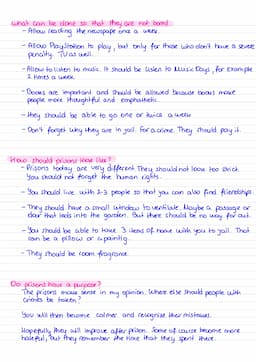 What can be done so that they are not bored.
- Allow reading the newspaper once a week.
- Allow Playstation to play, but only for those who don't have a severe
penalty. TV as well.
- Allow to listen to music. It should be listen to Music Days, for example
2 times a week.
- Books are important and should be allowed because books make
people more thoughtful and emphathetic.
- they should be able to go one or twice a week
- Don't forget why they are in jail. For a crime. They should pay it.
How should prisons look like?
- Prisons today are very different. They should not look too strict.
You should not forget the human rights.
- You should live with 2-3 people so that you can also find friendships.
- They should have a small window to ventilate. Maybe a passage or
door that leads into the garden. But there should be no way for out.
- You should be able to have 3 items of home with you to jail. That
can be a pillow or a painting.
- They should be room fragrance.
Do prisons have a purpose?
The prisons make sense in my opinion. Where else should people with
crimes be taken?
You will then become calmer and recognize their mistakes.
Hopefully they will improve after prison. Some of course become more
hateful, but they remember the time that they spent there.